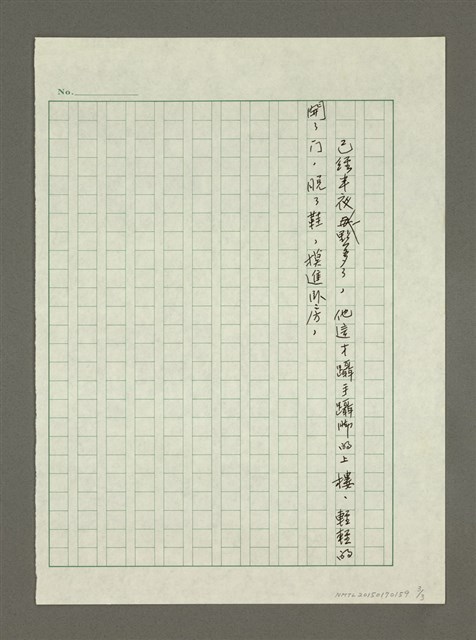 No.
已經半夜點多了，他這才躡手躡脚的上樓、輕輕的
開了门，脫了鞋，摸進臥房，
NMTL20150190159 3/3